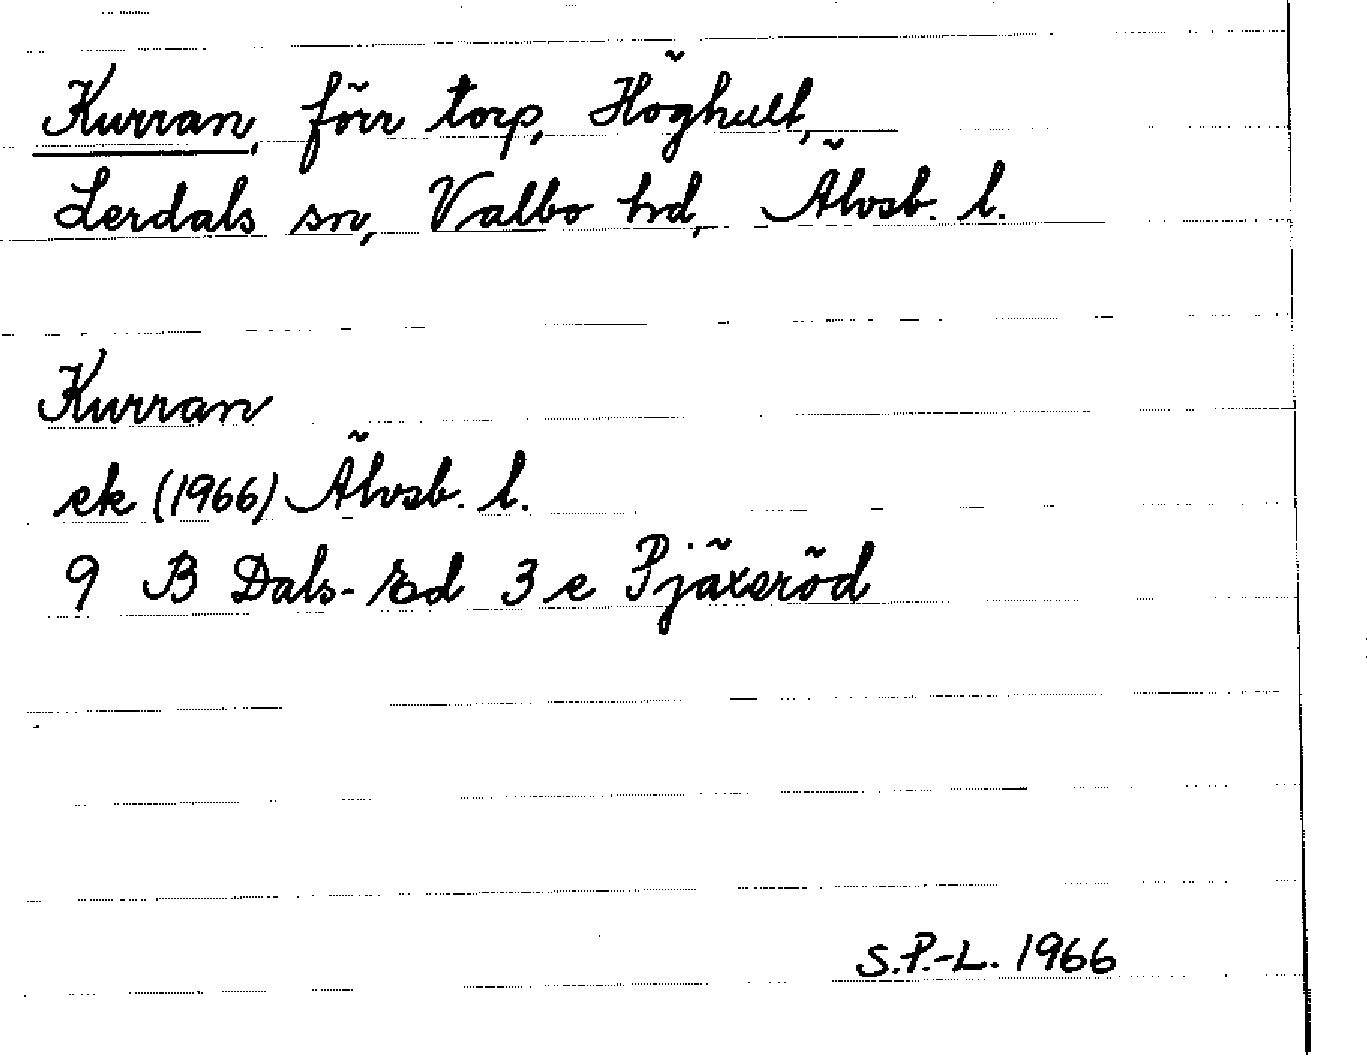 Kurran, förr torp, Höghult,
Lerdals sn, Valbo hd, Älvsb. l.
Kurran
ek (1966) Älvsb. l.
9 B Dals-Ed 3 e Pjäxeröd
S.P.-L. 1966